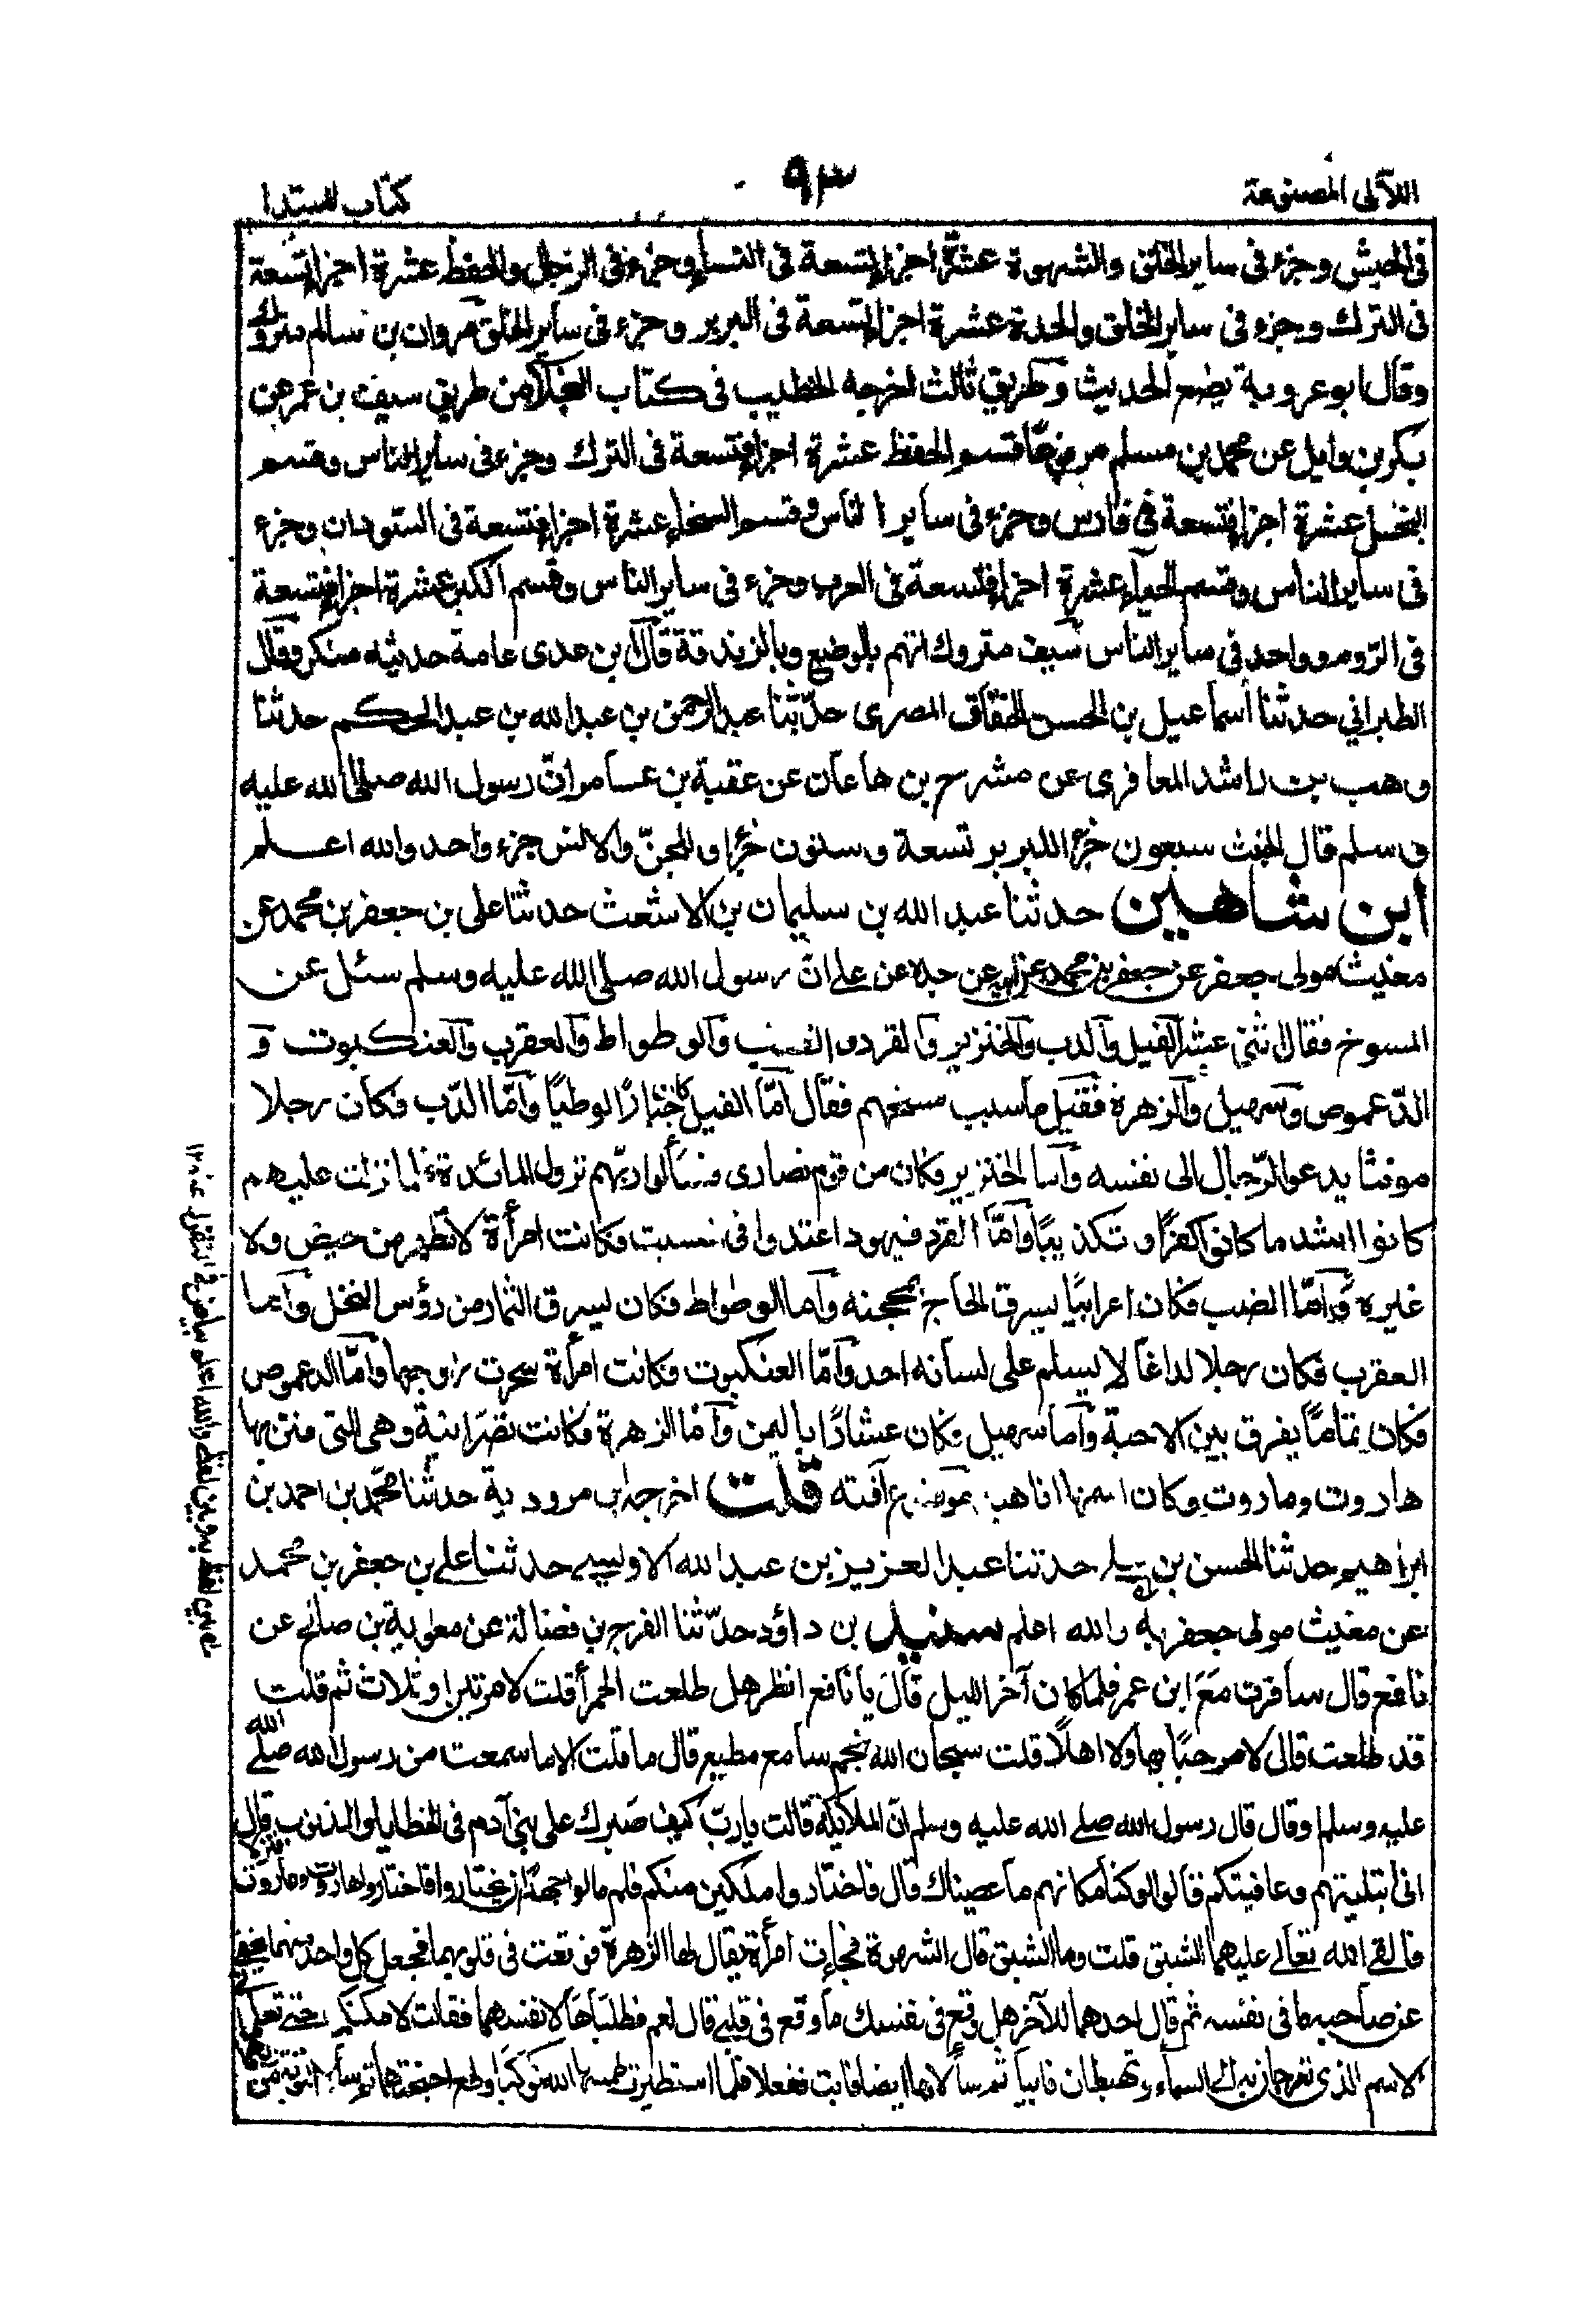 اللآلى المصنوعة
٩٣
كتاب المبتدا
فى الحبش وجزء فى ساير الخلق والشهوة عشرة اجزاء تسعة فى النساء وجزء فى الرجال والحفظ عشرة اجزاء تسعة
فى الترك وجزء فى ساير الخلق والحدة عشرة اجزاء تسعة فى البربر وجزء فى ساير الخلق مروان بن سالم متروك
وقال ابو عروبة يضع الحديث وطريق ثالث اخرجه الخطيب فى كتاب البخلاء من طريق سيف بن عمر عن
بكر بن وايل عن محمد بن مسلم مرفوعا قسم الحفظ عشرة اجزاء فتسعة فى الترك وجزء فى ساير الناس وقسم
البخل عشرة اجزاء فتسعة فى فارس وجزء فى ساير الناس وقسم السخاء عشرة اجزاء فتسعة فى السّودان وجزء
فى ساير الناس وقسم الحياء عشرة اجزاء فتسعة فى العرب وجزء فى ساير الناس وقسم الكبر عشرة اجزاء فتسعة
فى الرّوم وواحد فى ساير الناس سيف متروك اتهم بالوضع وبالزندقة قال ابن عدى عامة حديثه منكر وقال
الطبرانى حدثنا اسماعيل بن الحسن الخفاف المصرى حدّثنا عبد الرحمن بن عبد الله بن عبد الحكم حدثنا
وهب بن راشد المعافرى عن مشرح بن هاعان عن عقبة بن عامر انّ رسول الله صلى الله عليه
وسلم قال الخبث سبعون جزءا للبربر تسعة وستون جزءا وللجنّ والانس جزء واحد والله اعلم
ابن شاهين حدثنا عبد الله بن سليمان بن الاشعث حدثنا على بن جعفر بن محمد عن
مغيث مولى جعفر عن جعفر بن محمد عن ابيه عن جده عن على انّ رسول الله صلى الله عليه وسلم سئل عن
المسوخ فقال اثنى عشر الفيل والدب والخنزير والقرد والضب والوطواط والعقرب والعنكبوت و
الدّعموص وسهيل والزهرة فقيل ما سبب مسخهم فقال أمّا الفيل كان جبّارًا لوطيًا وأمّا الدّب فكان رجلا
مونثا يدعو الرّجال الى نفسه وأما الخنزير فكان من قوم نصارى فسألوا ربّهم نزول المائدة فلما نزلت عليهم
كانوا اشد ما كانوا كفرًا وتكذيبًا وأمّا القرد فيهود اعتدوا فى نسبت فكانت امرأة لا تطهر من حيض ولا
غيره وأمّا الضب فكان اعرابيًا يسرق الحاج بمحجنه وأما الوطواط فكان يسرق الثمار من رؤس النخل وأما
العقرب فكان رجلا لداغًا لا يسلم على لسانه احد وأمّا العنكبوت فكانت امرأة سحرت زوجها وأمّا الدعموص
فكان نمّامًا يفرق بين الاحبة وأما سهيل فكان عشارًا باليمن وأمّا الزهرة فكانت نصرانية وهى التى فتن بها
هاروت وماروت وكان اسمها اناهيد موضوع آفته قلت اخرجه ابن مردوية حدثنا محمد بن احمد بن
ابراهيم حدثنا الحسن بن حدثنا عبد العزيز بن عبد الله الاويسى حدثنا على بن جعفر بن محمد
عن مغيث مولى جعفر به والله اعلم سنيد بن داؤد حدّثنا الفرج بن فضالة عن معوية بن صالح عن
نافع قال سافرت مَعَ ابن عمر فلما كان آخر الليل قَالَ يا نافع انظر هل طلعت الحمرأ قلت لا مرتين او ثلاث ثم قلت
قد طلعت قال لا مرحبًا بها ولا اهلًا قلت سبحان الله نجم سامع مطيع قال ما قلت الا ما سمعت من رسول الله صلى الله
عليه وسلم وقال قال رسول الله صلى الله عليه وسلم انّ الملائكة قالت يا ربّ كيف صَبرك على بنى آدم فى الخطايا والذنوب قال
انى ابتليتهم وعافيتكم قالوا لو كنا مكانهم ما عصيناك قال فاختاروا ملكين منكم فلم يالوا جهدا ان يختاروا فاختاروا هاروت وماروت فنزلا
فالقى الله تعالى عليهما الشبق قلت وما الشبق قال الشهوة فجاءت امرأة يقال لها الزهرة فوقعت فى قلوبهما فجعل كل واحد منهما يخفى
عن صاحبه ما فى نفسه ثم قال احدهما للآخر هل وقع فى نفسك ما وقع فى قلبى قال نعم فطلباها لانفسهما فقالت لا امكنكما حتى تعلمانى
الاسم الذى تعرجان به الى السماء وتهبطان فابيا ثم سألاها ايضا فابت ففعلا فلما استطيرت طمسها الله كوكبا وقطع اجنحتهما ثم سألا التوبة من ربهما